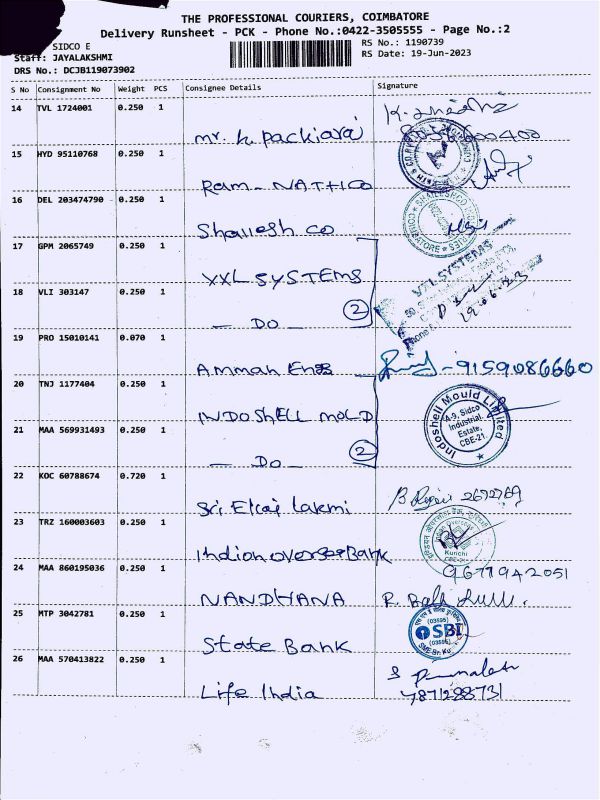 THE PROFESSIONAL COURIERS, COIMBATORE
Delivery Runsheet - PCK - Phone No.:0422-3505555 - Page No.:2
SIDCO E
RS No.: 1190739
Staff: JAYALAKSHMI
RS Date: 19-Jun-2023
DRS No.: DCJB119073902
S No Consignment No Weight PCS Consignee Details Signature
14 TVL 1724001 0.250 1
mr. k. packiaraj
15 HYD 95110768 0.250 1
Ram-NATHICO
16 DEL 203474790 0.250 1
Shailesh co
17 GPM 2065749 0.250 1
VXL SYSTEMS
VXL SYSTEMS
18 VLI 303147 0.250 1
- DO - 2
19.06.23
19 PRO 15010141 0.070 1
Amman Engg - 9159086660
20 TNJ 1177404 0.250 1
INDOSHELL MOLD
Indoshell Mould Limited
A-9, Sidco
Industrial
Estate,
CBE-21.
21 MAA 569931493 0.250 1
- DO - 2
22 KOC 60788674 0.720 1
Sri Elcaj Laxmi 2672769
23 TRZ 160003603 0.250 1
Indian overseas Bank
Kurichi
24 MAA 860195036 0.250 1
9677942051
NANDHANA
25 MTP 3042781 0.250 1
(03595)
SBI
State Bank
26 MAA 570413822 0.250 1
Life India 7871288731